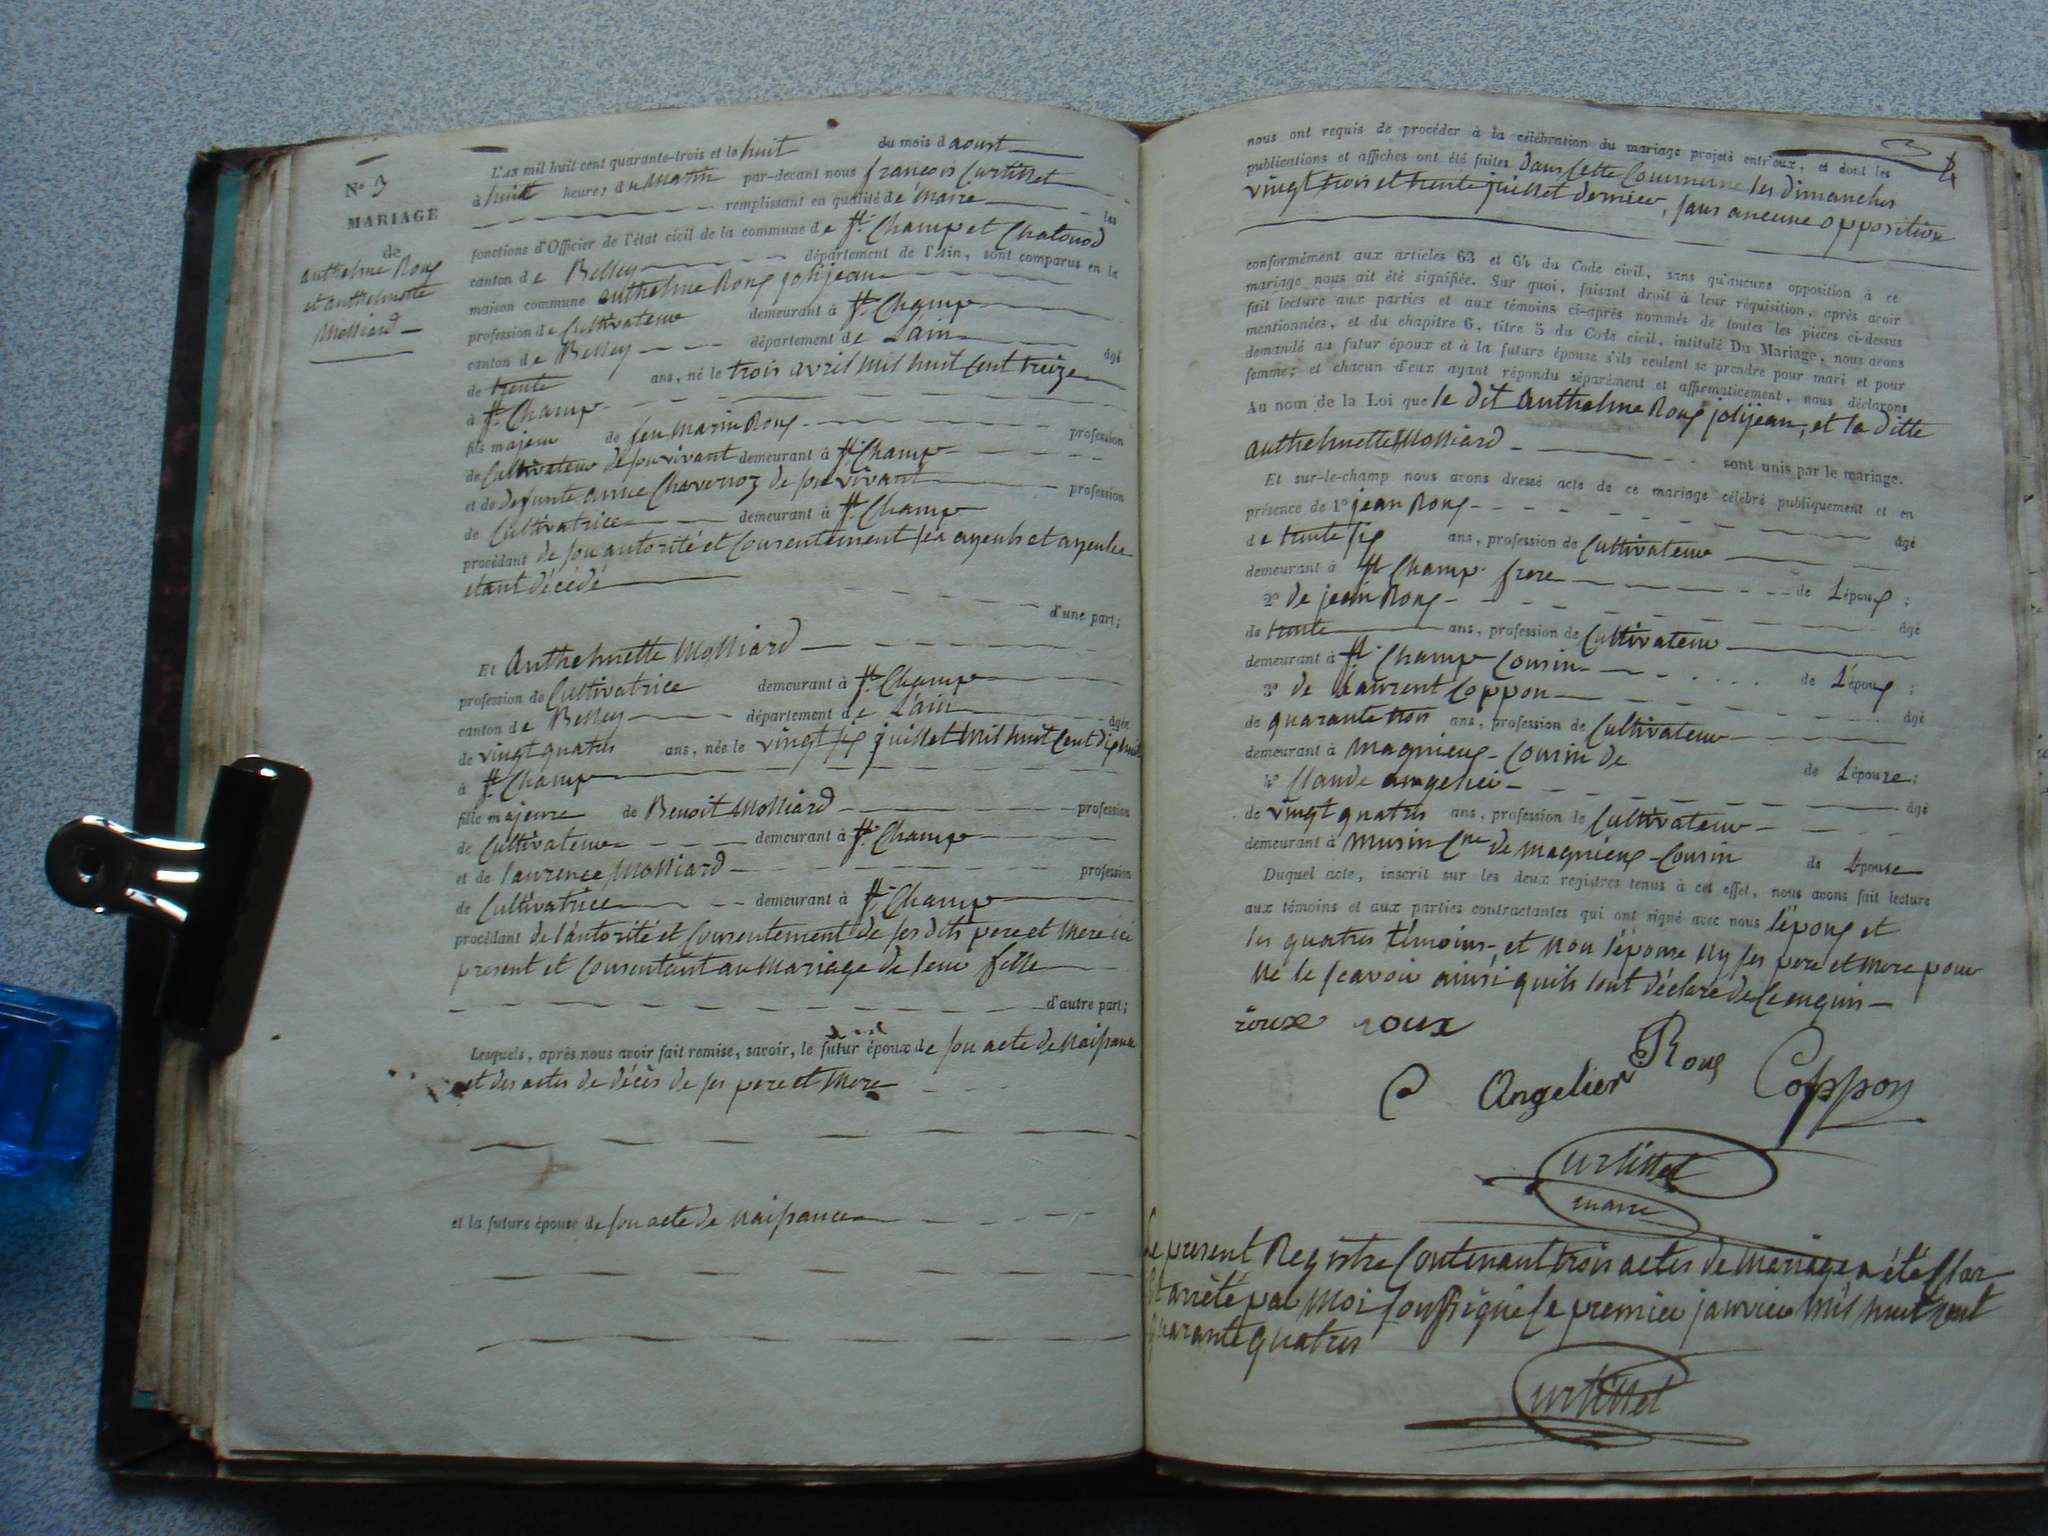 N° 3
MARIAGE
de
anthelme Roux
et anthelmette
Molliard
L'AN mil huit cent quarante-trois et le huit du mois d aoust
à huit heures du Matin par-devant nous françois Curtillet
remplissant en qualité de Maire les
fonctions d'Officier de l'état civil de la commune de St. Champ et Chatonod
canton de Belley département de l'Ain, sont comparus en la
maison commune anthelme Roux jolijean
profession de Cultivateur demeurant à St. Champ
canton de Belley département de L'ain âgé
de trente ans, né le trois avril Mil huit Cent treize
à St. Champ
fils majeur de feu Marin Roux profession
de Cultivateur de son vivant demeurant à St. Champ
et de defunte anne Chavenoz de son vivant profession
de Cultivatrice demeurant à St. Champ
procédant de son autorité et Consentement ses ayeuls et ayeules
etant décédé
d'une part;
Et Anthelmette Molliard
profession de Cultivatrice demeurant à St. Champ
canton de Belley département de L'ain âgée
de vingt quatres ans, née le vingt six juillet Mil huit Cent dix huit
à St. Champ
fille majeure de Benoit Molliard profession
de Cultivateur demeurant à St. Champ
et de laurence Molliard profession
de Cultivatrice demeurant à St. Champ
procédant de l'autorité et Consentement de ses dits pere et Mere ici
present et Consentant au Mariage de leur fille
d'autre part;
Lesquels, après nous avoir fait remise, savoir, le futur époux de son acte de Naissance
et des actes de décès de ses pere et Mere
et la future épouse de son acte de Naissance
3
nous ont requis de procéder à la célébration du mariage projeté entr'eux, et dont les
publications et affiches ont été faites Dans Cette Commune les dimanches
vingt trois et trente juillet dernier, sans aucune opposition
conformément aux articles 63 et 64 du Code civil, sans qu'aucune opposition à ce
mariage nous ait été signifiée. Sur quoi, faisant droit à leur réquisition, après avoir
fait lecture aux parties et aux témoins ci-après nommés de toutes les pièces ci-dessus
mentionnées, et du chapitre 6, titre 5 du Code civil, intitulé Du Mariage, nous avons
demandé au futur époux et à la future épouse s'ils veulent se prendre pour mari et pour
femme; et chacun d'eux ayant répondu séparément et affirmativement, nous déclarons
Au nom de la Loi que le dit Anthelme Roux jolijean, et la ditte
Anthelmette Molliard sont unis par le mariage.
Et sur-le-champ nous avons dressé acte de ce mariage célébré publiquement et en
présence de 1° jean Roux âgé
de trente six ans, profession de Cultivateur
demeurant à St Champ frere de L'époux;
2° de jean Roux âgé
de trente ans, profession de Cultivateur
demeurant à St. Champ Cousin de L'époux;
3° de Laurent Coppon âgé
de quarante trois ans, profession de Cultivateur
demeurant à Magnieux Cousin de de L'épouse;
4° Claude angelier âgé
de vingt quatres ans, profession de Cultivateur
demeurant à Musin Cne de Magnieux Cousin de Lépouse
Duquel acte, inscrit sur les deux registres tenus à cet effet, nous avons fait lecture
aux témoins et aux parties contractantes qui ont signé avec nous l'époux et
les quatres témoins, et Non l'épouse Ny ses pere et Mere pour
Ne le sçavoir ainsi quils lont déclaré de Ce enquis
roux roux
Roux
C Angelier Coppon
Curtillet
maire
Le present Registre Contenant trois actes de Mariage a été Clos
Et arrêté par Moi soussigné le premier janvier Mil huit Cent
quarante quatres
Curtillet